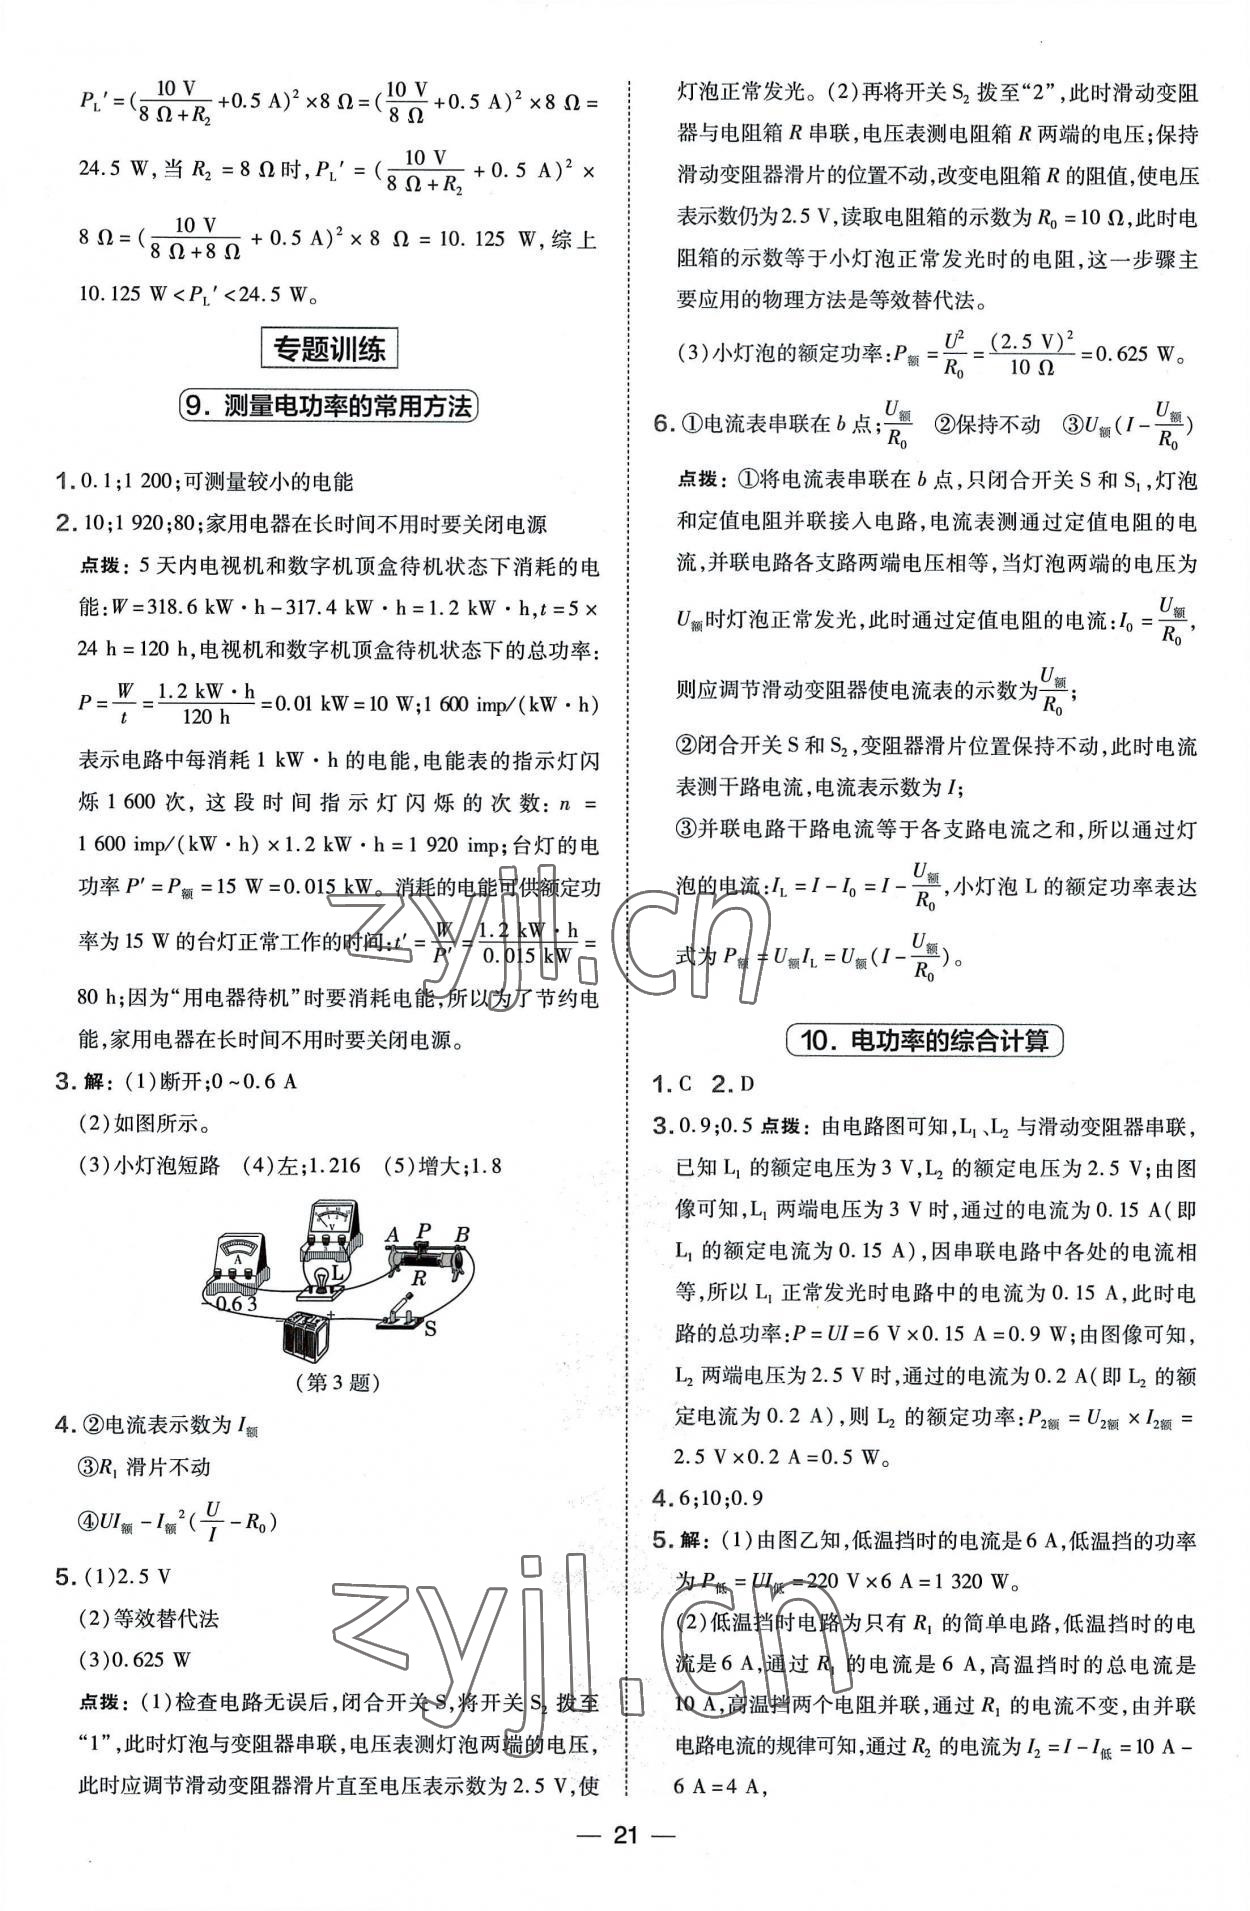 P_L′=(10 V/(8 Ω+R₂)+0.5 A)²×8 Ω=(10 V/8 Ω+0.5 A)²×8 Ω=
24.5 W,当 R₂=8 Ω时,P_L′=(10 V/(8 Ω+R₂)+0.5 A)²×
8 Ω=(10 V/(8 Ω+8 Ω)+0.5 A)²×8 Ω=10.125 W,综上
10.125 W<P_L′<24.5 W。
专题训练
9. 测量电功率的常用方法
1. 0.1;1 200;可测量较小的电能
2. 10;1 920;80;家用电器在长时间不用时要关闭电源
点拨:5 天内电视机和数字机顶盒待机状态下消耗的电
能:W=318.6 kW·h-317.4 kW·h=1.2 kW·h,t=5×
24 h=120 h,电视机和数字机顶盒待机状态下的总功率:
P=W/t=1.2 kW·h/120 h=0.01 kW=10 W;1 600 imp/(kW·h)
表示电路中每消耗 1 kW·h 的电能,电能表的指示灯闪
烁 1 600 次,这段时间指示灯闪烁的次数:n=
1 600 imp/(kW·h)×1.2 kW·h=1 920 imp;台灯的电
功率 P′=P额=15 W=0.015 kW。消耗的电能可供额定功
率为 15 W 的台灯正常工作的时间:t′=W/P′=1.2 kW·h/0.015 kW=
80 h;因为“用电器待机”时要消耗电能,所以为了节约电
能,家用电器在长时间不用时要关闭电源。
3. 解:(1)断开;0~0.6 A
(2)如图所示。
(3)小灯泡短路 (4)左;1.216 (5)增大;1.8
A P B
V
A
L R
- 0.6 3 + S
(第 3 题)
4. ②电流表示数为 I额
③R₁ 滑片不动
④UI额-I额²(U/I-R₀)
5. (1)2.5 V
(2)等效替代法
(3)0.625 W
点拨:(1)检查电路无误后,闭合开关 S,将开关 S₂ 拨至
“1”,此时灯泡与变阻器串联,电压表测灯泡两端的电压,
此时应调节滑动变阻器滑片直至电压表示数为 2.5 V,使
灯泡正常发光。(2)再将开关 S₂ 拨至“2”,此时滑动变阻
器与电阻箱 R 串联,电压表测电阻箱 R 两端的电压;保持
滑动变阻器滑片的位置不动,改变电阻箱 R 的阻值,使电压
表示数仍为 2.5 V,读取电阻箱的示数为 R₀=10 Ω,此时电
阻箱的示数等于小灯泡正常发光时的电阻,这一步骤主
要应用的物理方法是等效替代法。
(3)小灯泡的额定功率:P额=U²/R₀=(2.5 V)²/10 Ω=0.625 W。
6. ①电流表串联在 b 点;U额/R₀ ②保持不动 ③U额(I-U额/R₀)
点拨:①将电流表串联在 b 点,只闭合开关 S 和 S₁,灯泡
和定值电阻并联接入电路,电流表测通过定值电阻的电
流,并联电路各支路两端电压相等,当灯泡两端的电压为
U额时灯泡正常发光,此时通过定值电阻的电流:I₀=U额/R₀,
则应调节滑动变阻器使电流表的示数为U额/R₀;
②闭合开关 S 和 S₂,变阻器滑片位置保持不动,此时电流
表测干路电流,电流表示数为 I;
③并联电路干路电流等于各支路电流之和,所以通过灯
泡的电流:I_L=I-I₀=I-U额/R₀,小灯泡 L 的额定功率表达
式为 P额=U额I_L=U额(I-U额/R₀)。
10. 电功率的综合计算
1. C 2. D
3. 0.9;0.5 点拨:由电路图可知,L₁、L₂ 与滑动变阻器串联,
已知 L₁ 的额定电压为 3 V,L₂ 的额定电压为 2.5 V;由图
像可知,L₁ 两端电压为 3 V 时,通过的电流为 0.15 A(即
L₁ 的额定电流为 0.15 A),因串联电路中各处的电流相
等,所以 L₁ 正常发光时电路中的电流为 0.15 A,此时电
路的总功率:P=UI=6 V×0.15 A=0.9 W;由图像可知,
L₂ 两端电压为 2.5 V 时,通过的电流为 0.2 A(即 L₂ 的额
定电流为 0.2 A),则 L₂ 的额定功率:P₂额=U₂额×I₂额=
2.5 V×0.2 A=0.5 W。
4. 6;10;0.9
5. 解:(1)由图乙知,低温挡时的电流是 6 A,低温挡的功率
为 P低=UI低=220 V×6 A=1 320 W。
(2)低温挡时电路为只有 R₁ 的简单电路,低温挡时的电
流是 6 A,通过 R₁ 的电流为 6 A,高温挡时的总电流是
10 A,高温挡两个电阻并联,通过 R₁ 的电流不变,由并联
电路电流的规律可知,通过 R₂ 的电流为 I₂=I-I低=10 A-
6 A=4 A,
— 21 —
zyjl.cn
zyjl.cn